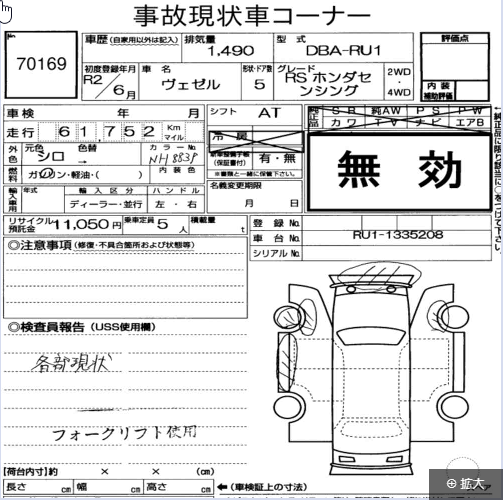 事故現状車コーナー
No
70169
車歴 (自家用以外は記入)
排気量
1,490
型式
DBA-RU1
評価点
初度登録年月
R2/6月
車名
ヴェゼル
形状・ドア数
5
グレード
RS ホンダセンシング
2WD
・
4WD
内装
補助評価
車検 年 月
シフト AT
純正品
SR 純AW PS PW
カワ TV ナビ エアB
走行 61,752 Km マイル
冷房
無効
外色
元色 シロ
色替 →
カラーNo. NH883P
内装色
(保証書付)
有・無
※書類と一緒に保管して下さい。
燃料 ガソリン・軽油・( )
名義変更期限
月 日
輸入車用
年式
輸入区分
ディーラー・並行
ハンドル
左・右
リサイクル預託金 11,050円
乗車定員 5人
積載量 t
登録No.
車台No. RU1-1335208
シリアルNo.
◎注意事項 (修復・不具合箇所および状態等)
◎検査員報告 (USS使用欄)
各部現状
フォークリフト使用
【荷台内寸】約 × × (cm)
長さ cm 幅 cm 高さ cm
← (車検証上の寸法)
拡大